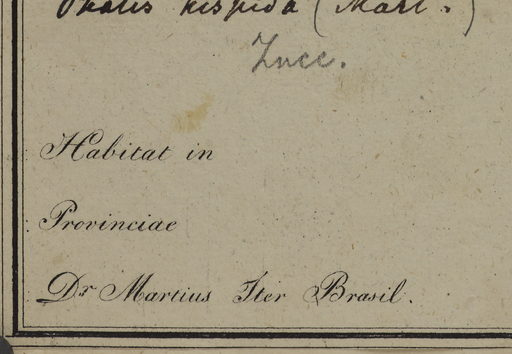 Oxalis hispida (Mart.)
Zucc.
Habitat in
Provinciae
Dr Martius Iter Brasil.